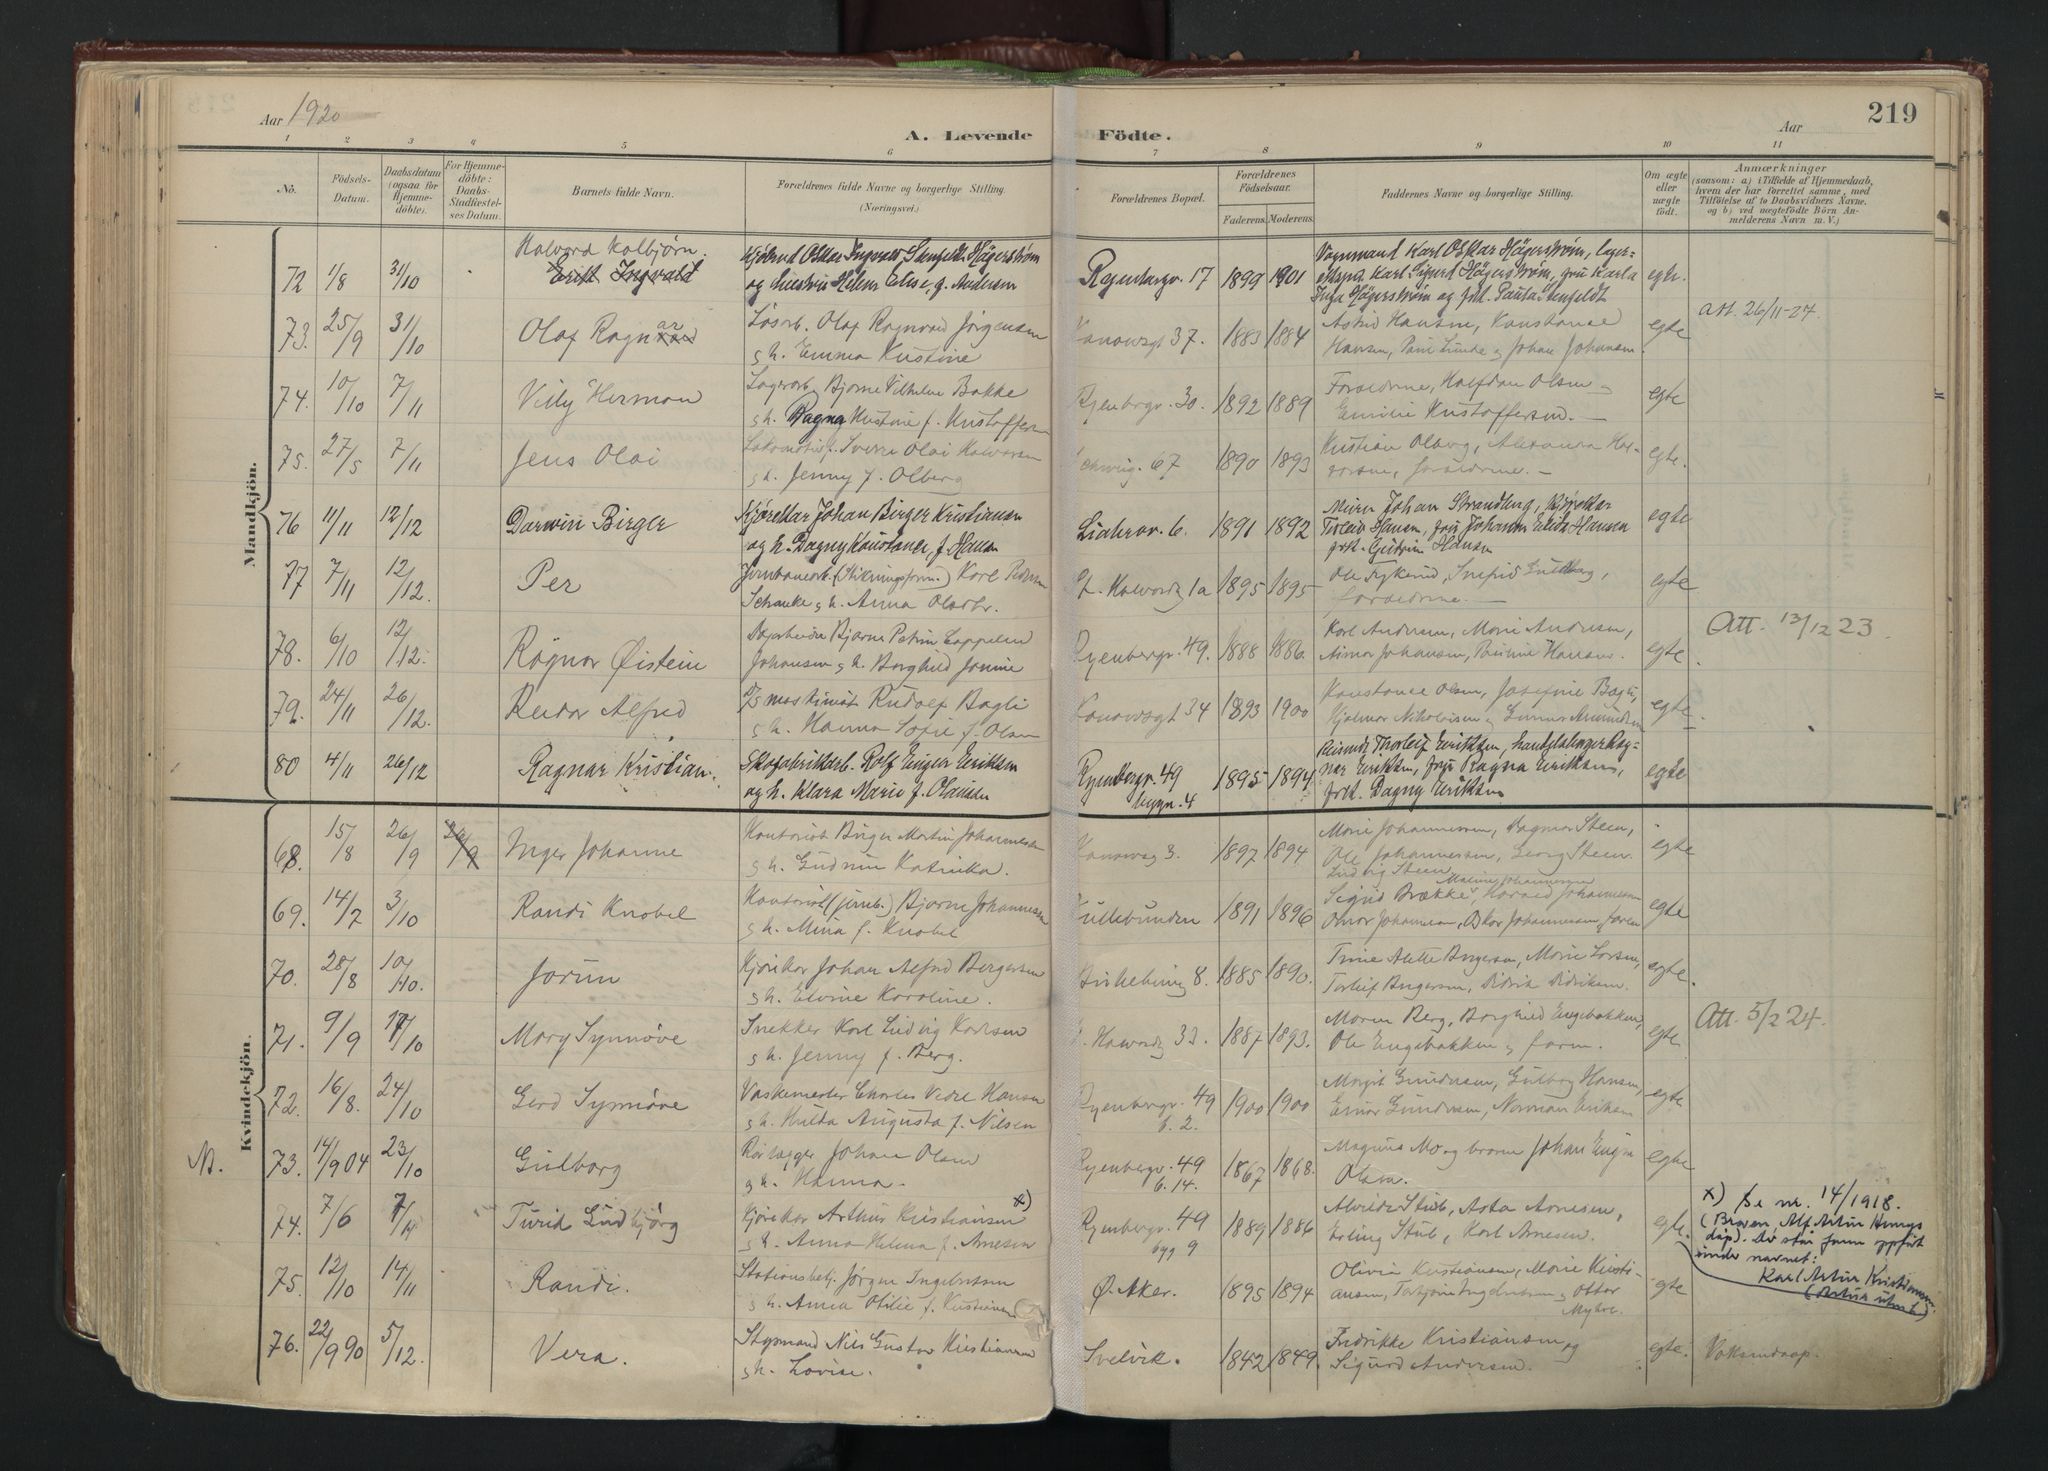 Aar 1920
A. Levende Födte.
Aar
219
1 2 3 4 5 6 7 8 9 10 11
No. Födsels-Datum. Daabsdatum (ogsaa for Hjemmedöbte). For Hjemmedöbte: Daabs-Stadfæstelses Datum. Barnets fulde Navn. Forældrenes fulde Navne og borgerlige Stilling. (Næringsvei.) Forældrenes Bopæl. Forældrenes Födselsaar. Faderens. Moderens. Faddernes Navne og borgerlige Stilling. Om ægte eller uægte födt. Anmærkninger (saasom: a) i Tilfælde af Hjemmedaab, hvem der har forrettet samme, med Tilföielse af to Daabsvidners Navne, og b) ved uægtefödte Börn Anmelderens Navn m. V.)
Mandkjön.
Halvard Kolbjørn.
72 1/8 31/10 Erik Ingvald
og Helene Elise, f. Andersen Ryenbergv. 17 1899 1901
Karl Oskar Hägerström,
Karl Sigurd Hägerström, fru Karla
Inga Hägerström og frk. Paula Stenfeldt
73. 25/9 31/10 Olaf Ragnar
Løsarb. Olaf Ragnvald Jörgensen
g h. Emma Kristine Kanowsgt 37. 1883 1884
Astrid Hansen, Konstanse
Hansen, Paul Lunde g Johan Johansen. egte att. 26/11-24.
74. 10/10 7/11 Villy Herman
Lagerarb. Bjarne Vilhelm Bakke
g h. Dagny Kristine f. Kristoffersen Ryenbergv. 30. 1892 1889
Foreldrene, Halfdan Olsen
Emilie Kristoffersen. egte
75. 27/5 7/11 Jens Olai
Sverre Olai Halvorsen
g h. Jenny f. Olberg 67 1890 1893
Kristian Olberg, Alexandra
foreldrene. egte.
76 11/11 12/12 Darwin Birger
Kjørekar Johan Birger Kristiansen
og h. Dagny Konstance, f. Hansen Liabrov. 6. 1891 1892
Murer Johan Strandberg, Kjørekar
Hansen, fru Johanne Hansen
frk. Gudrun Hansen egte
77 7/11 12/12. Per
Jernbanearb. Karl
Schanke g h. Anna St. Halvardg 1a 1895 1895
Ole
foreldrene. egte
78. 6/10 12/12. Ragnar Øistein
Bjarne Petrin Cappelen
Johansen g h. Borghild Jonine Ryenbergv. 49. 1888 1886.
Karl Andersen, Marie Andersen,
Johansen, Pauline Hansen. egte Att. 13/12 23.
79. 24/11 26/12. Reidar Alfred
maskinist Rudolf Bagli
g h. Hanna Sofie f. Olsen Kanowsgt 34 1893 1900
Konstance Olsen, Josefine Bagli,
Hjalmar Nikolaisen g Gunnar Amundsen egte
80 4/11 26/12 Ragnar Kristian.
Skofabrikarb. Rolf Einar Eriksen
og h. Klara Marie f. Olausen Ryenbergv. 49
bygn. 4 1895 1894
Thorleif Eriksen, handelsborger Rag-
nar Eriksen, fru Ragna Eriksen,
frk. Dagny Eriksen egte
Kvindekjön.
68. 15/8 26/9 26/9 Inger Johanne
Kontorist Birger Martin Johannessen
g h. Gudrun Katinka. Kanowsg 3. 1897 1894
Marie Johannessen, Dagmar Steen,
Ole Johannessen, Georg Steen.
Ludvig Steen egte
69. 14/2 3/10 Randi Knobel
Kontorist (jernb.) Bjarne Johannessen
g h. Mina f. Knobel 1891 1896
Sigrid Brække, Harald Johannessen
Johannessen, Oskar Johannessen, faren egte
70. 28/8 10/10. Jorun
Kjørekar Johan Alfred Bergersen
g h. Elvine Karoline. Birkelunig 8. 1885 1890.
Trine Alette Birgersen, Marie Larsen,
Torleif Birgersen, Didrik Didriksen. egte.
71. 9/9 17/10 Mary Synnöve
Snekker Karl Ludvig Karlsen
g h. Jenny f. Berg. St. Halvardg 33. 1887 1893.
Maren Berg, Borghild Engebakken,
Ole Engebakken g faren. egte Att. 5/2 24.
72. 16/8. 24/10 Gerd Synnöve
Vaskemester Charles Hansen
g h. Hulda Augusta f. Nilsen Ryenbergv. 49
b. 2. 1900 1900
Margit Gundersen, Gulborg Hansen,
Einar Gundersen, Norman Eriksen egte
N. 73. 14/9 04 23/10 Gulborg
Rörlægger Johan Olsen
g h. Hanna. Ryenbergv. 49
b. 14. 1867 1868.
Magnus Mo og broren Johan Einar
Olsen. egte
74. 7/6 7/11 Turid Lindbjørg
Kjørekar Arthur Kristiansen x)
g h. Anna Helena f. Arnesen Ryenbergv. 49
byg 9 1889 1886
Alvilde Stub, Asta Arnesen,
Erling Stub, Karl Arnesen. egte.
x) Se nr. 14/1918.
(Broren, Alf Artur Henrys
dåp). Der står faren oppført
under navnet:
Karl Artur Kristiansen.
75. 12/10 14/11 Randi.
Stationsbetj. Jörgen Ingebretsen
g h. Anna Otilie f. Kristiansen Ø. Aker. 1895 1894
Olivia Kristiansen, Marie Kristi-
ansen, Torbjörn Ingebretsen g Ottar
Myhre. egte
76. 22/9 90 5/12. Vera.
Styrmand Nils Gustav Kristiansen
g h. Lovise. Svelvik. 1842 1849.
Fredrikke Kristiansen og
Sigurd Andersen. egte. Voksendaap.